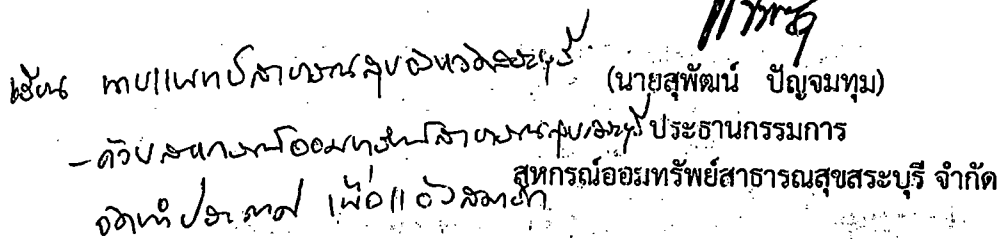 เรียน นายแพทย์สาธารณสุขจังหวัดสระบุรี
(นายสุพัฒน์ ปัญจมทุม)
- ด้วยสหกรณ์ออมทรัพย์สาธารณสุขสระบุรี
ประธานกรรมการ
สหกรณ์ออมทรัพย์สาธารณสุขสระบุรี จำกัด
จัดทำประกาศ เพื่อแจ้งสมาชิก